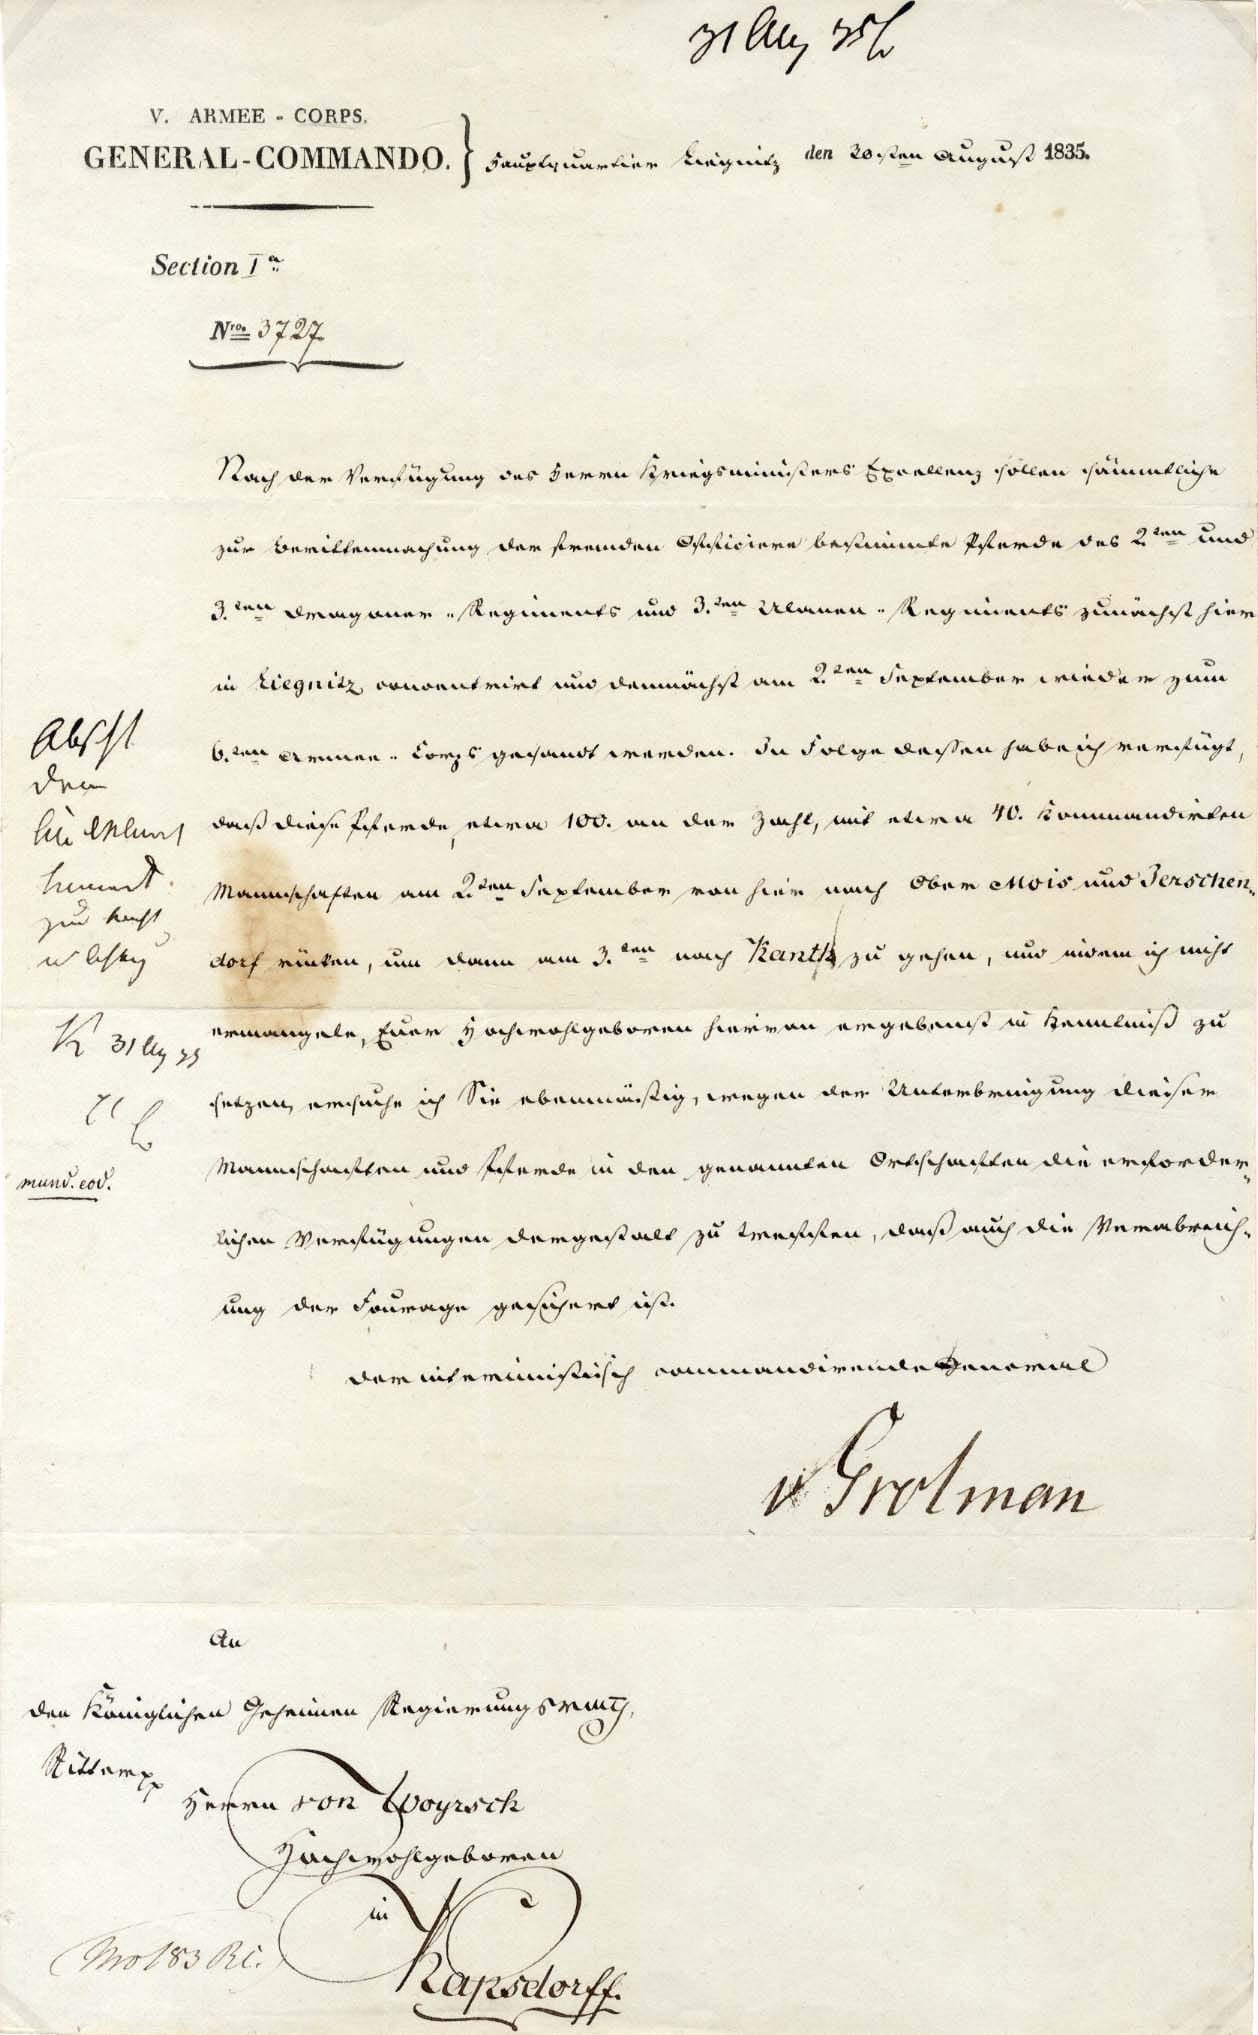 31 Aug 35
V. ARMEE - CORPS.
GENERAL-COMMANDO. } Hauptquartier Liegnitz den 20sten August 1835.
Section I a
Nro. 3727.
Nach der Verfügung des Herrn Kriegsministers Excellenz sollen sämmtliche
zur Berittenmachung der fremden Officiere bestimmte Pferde des 2.ten und
3.ten Dragoner-Regiments und 3.ten Ulanen-Regiments zunächst hier
in Liegnitz concentrirt und demnächst am 2.ten September wieder zum
6.ten Armee-Corps gesandt werden. In Folge dessen habe ich verfügt,
daß diese Pferde, etwa 100. an der Zahl, mit etwa 40. Kommandirten
Mannschaften am 2.ten September von hier nach Ober Mois und Jerschen-
dorf rücken, um dann am 3.ten nach Kanth zu gehen, und indem ich nicht
ermangele, Euer Hochwohlgeboren hiervon ergebenst in Kenntniß zu
setzen, ersuche ich Sie ebenmäßig, wegen der Unterbringung dieser
Mannschaften und Pferde in den genannten Ortschaften die erforder-
lichen Verfügungen dergestalt zu treffen, daß auch die Verabreich-
ung der Fourage gesichert ist.
Der interimistisch commandirende General
v Grolman
Abscht
dem
zur
K 31 Aug 35
mund. eod.
An
den Königlichen Geheimen Regierungsrath,
Ritter pp
Herrn von Woyrsch
Hochwohlgeboren
in
Kapsdorff.